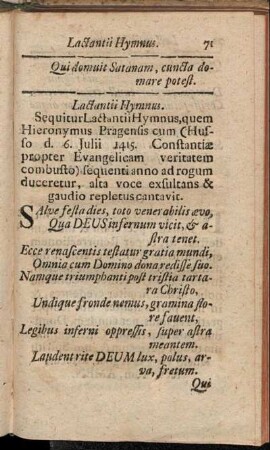 Lactantii Hymnus. 71
Qui domuit Satanam, cuncta do-
mare potest.
Lactantii Hymnus.
Sequitur Lactantii Hymnus, quem
Hieronymus Pragensis cum (Hus-
so d. 6. Julii 1415. Constantiæ
propter Evangelicam veritatem
combusto) sequenti anno ad rogum
duceretur, alta voce exsultans &
gaudio repletus cantavit.
SAlve festa dies, toto venerabilis ævo,
Qua DEUS infernum vicit, & a-
stra tenet.
Ecce renascentis testatur gratia mundi,
Omnia cum Domino dona redisse suo.
Namque triumphanti post tristia tarta-
ra Christo,
Undique fronde nemus, gramina flo-
re favent,
Legibus inferni oppressis, super astra
meantem.
Laudent rite DEUM lux, polus, ar-
va, fretum.
Qui